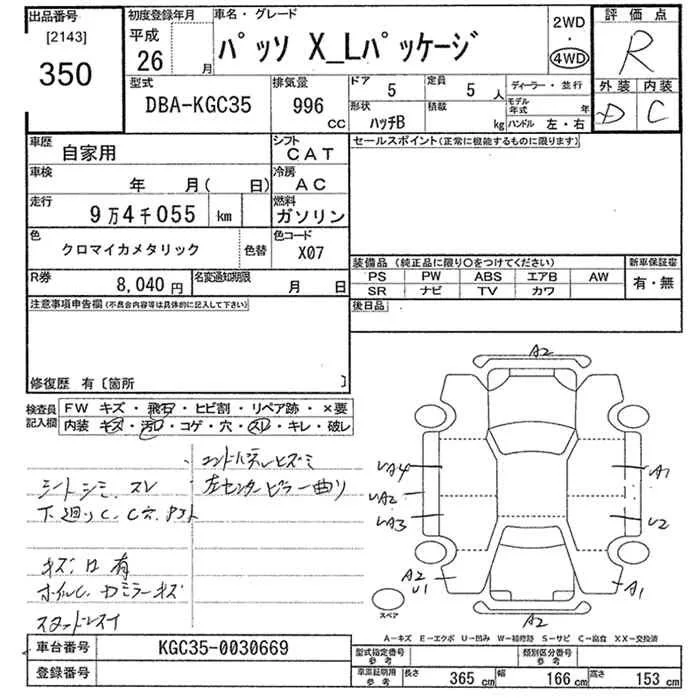 出品番号
[2143]
350
初度登録年月
平成
26 月
車名・グレード
パッソ X_Lパッケージ
2WD
・
4WD
評価点
R
外装 内装
D C
型式
DBA-KGC35
排気量
996
CC
ドア
5
定員
5 人
形状
ハッチB
積載
kg
ディーラー・並行
モデル年式 年
ハンドル 左・右
車歴
自家用
シフト
CAT
車検
年 月( 日)
冷房
AC
走行
9万4千055 km
燃料
ガソリン
色
クロマイカメタリック
色替
色コード
X07
R券
8,040 円
名変通知期限
月 日
セールスポイント(正常に機能するものに限ります)
装備品(純正品に限り○をつけてください)
PS PW ABS エアB AW
SR ナビ TV カワ
新車保証書
有・無
後日品
注意事項申告欄(不具合内容等は具体的に記入して下さい)
修復歴 有〔箇所 〕
検査員記入欄
FW キズ・飛石・ヒビ割・リペア跡・×要
内装 キズ・汚れ・コゲ・穴・スレ・キレ・破レ
シートシミ、スレ
左センターピラー曲り
キズ凹有
A2
A1
U2
A1
A2
A2
U1
スペア
A－キズ E－エクボ U－凹み W－補修跡 S－サビ C－腐食 XX－交換済
車台番号
KGC35-0030669
登録番号
型式指定番号
参考
類別区分番号
参考
車庫証明用
参考
長さ 365 cm
幅 166 cm
高さ 153 cm